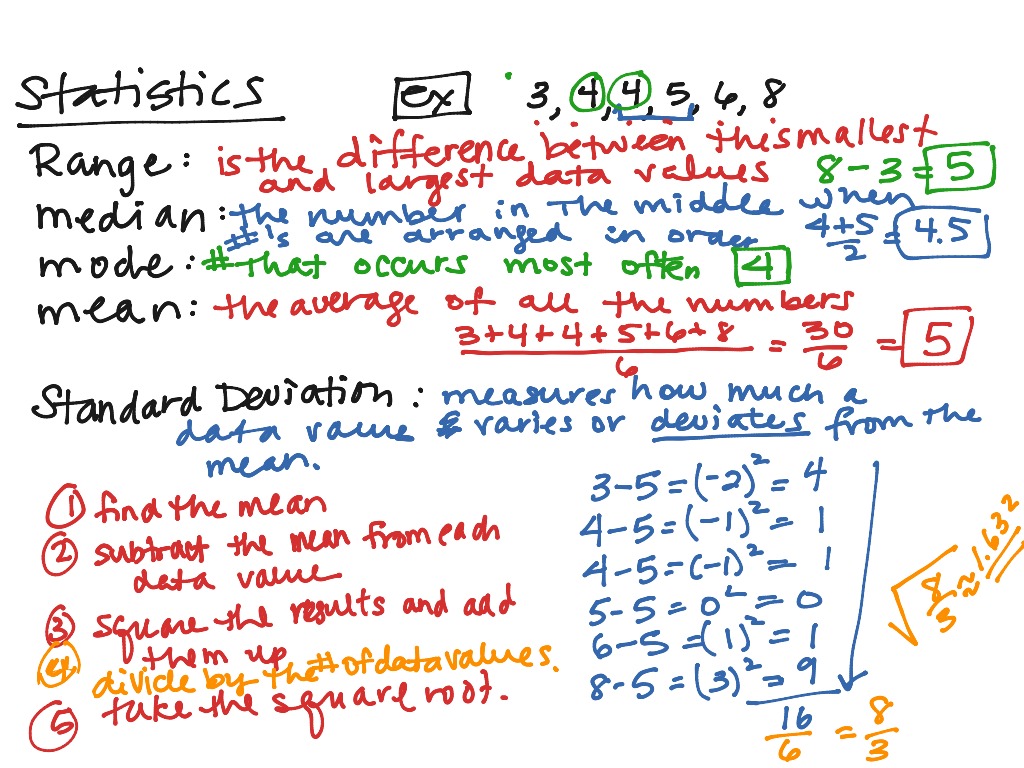 Statistics ex 3, 4, 4, 5, 6, 8
Range: is the difference between the smallest
and largest data values 8 - 3 = 5
median: the number in the middle when
#'s are arranged in order 4+5/2 = 4.5
mode: # that occurs most often 4
mean: the average of all the numbers
3+4+4+5+6+8/6 = 30/6 = 5
Standard Deviation: measures how much a
data value varies or deviates from the
mean.
① find the mean
② subtract the mean from each
data value
③ square the results and add
them up
④ divide by the # of data values.
⑤ take the square root.
3-5=(-2)²=4
4-5=(-1)²=1
4-5=(-1)²=1
5-5=0²=0
6-5=(1)²=1
8-5=(3)²=9
16/6 = 8/3
√8/3 ≈ 1.632